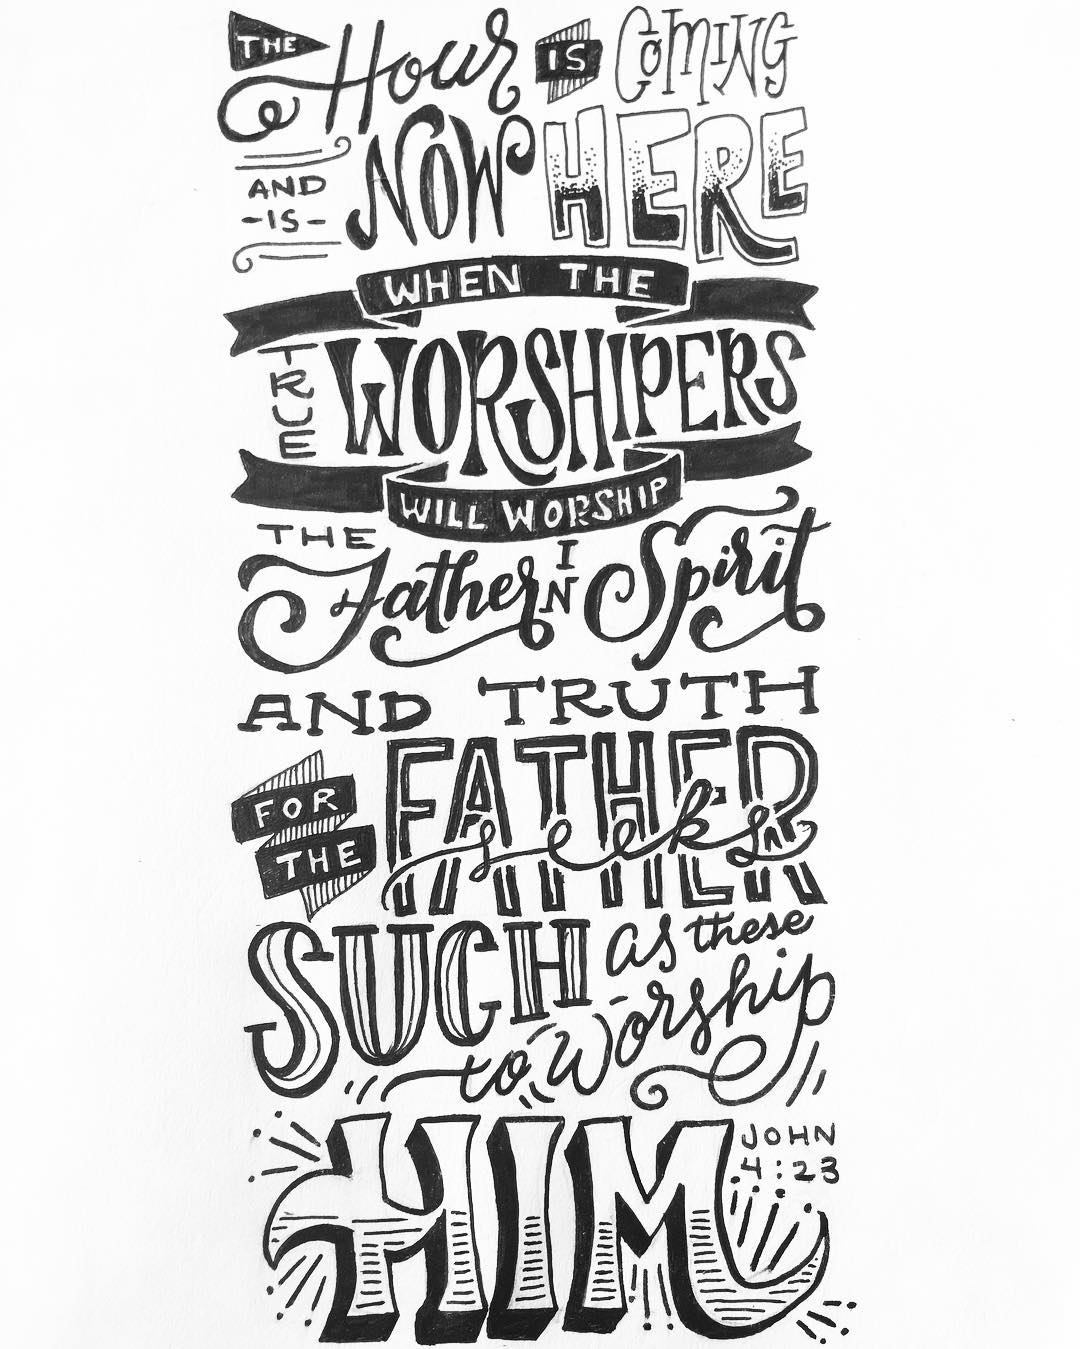 THE Hour IS COMING
AND -IS- NOW HERE
WHEN THE
TRUE WORSHIPERS
WILL WORSHIP
THE Father IN Spirit
AND TRUTH
FOR THE FATHER seeks
SUCH as these
to Worship
HIM JOHN 4:23